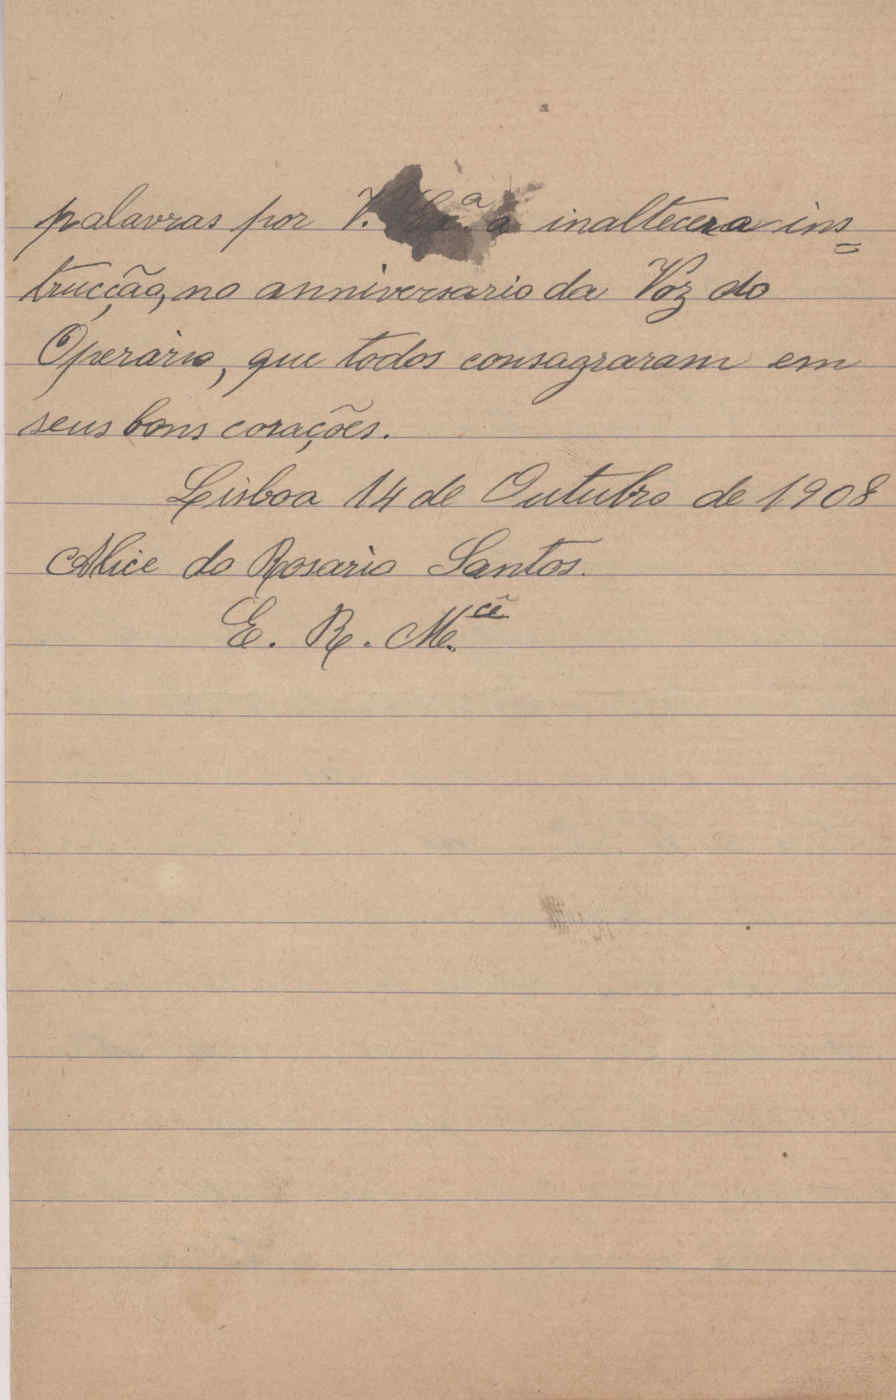 palavras por V. Ex.ª a inaltecer a ins=
trucção, no anniversario da Voz do
Operario, que todos consagraram em
seus bons corações.
Lisboa 14 de Outubro de 1908
Alice do Rosario Santos.
E. R. M.cê